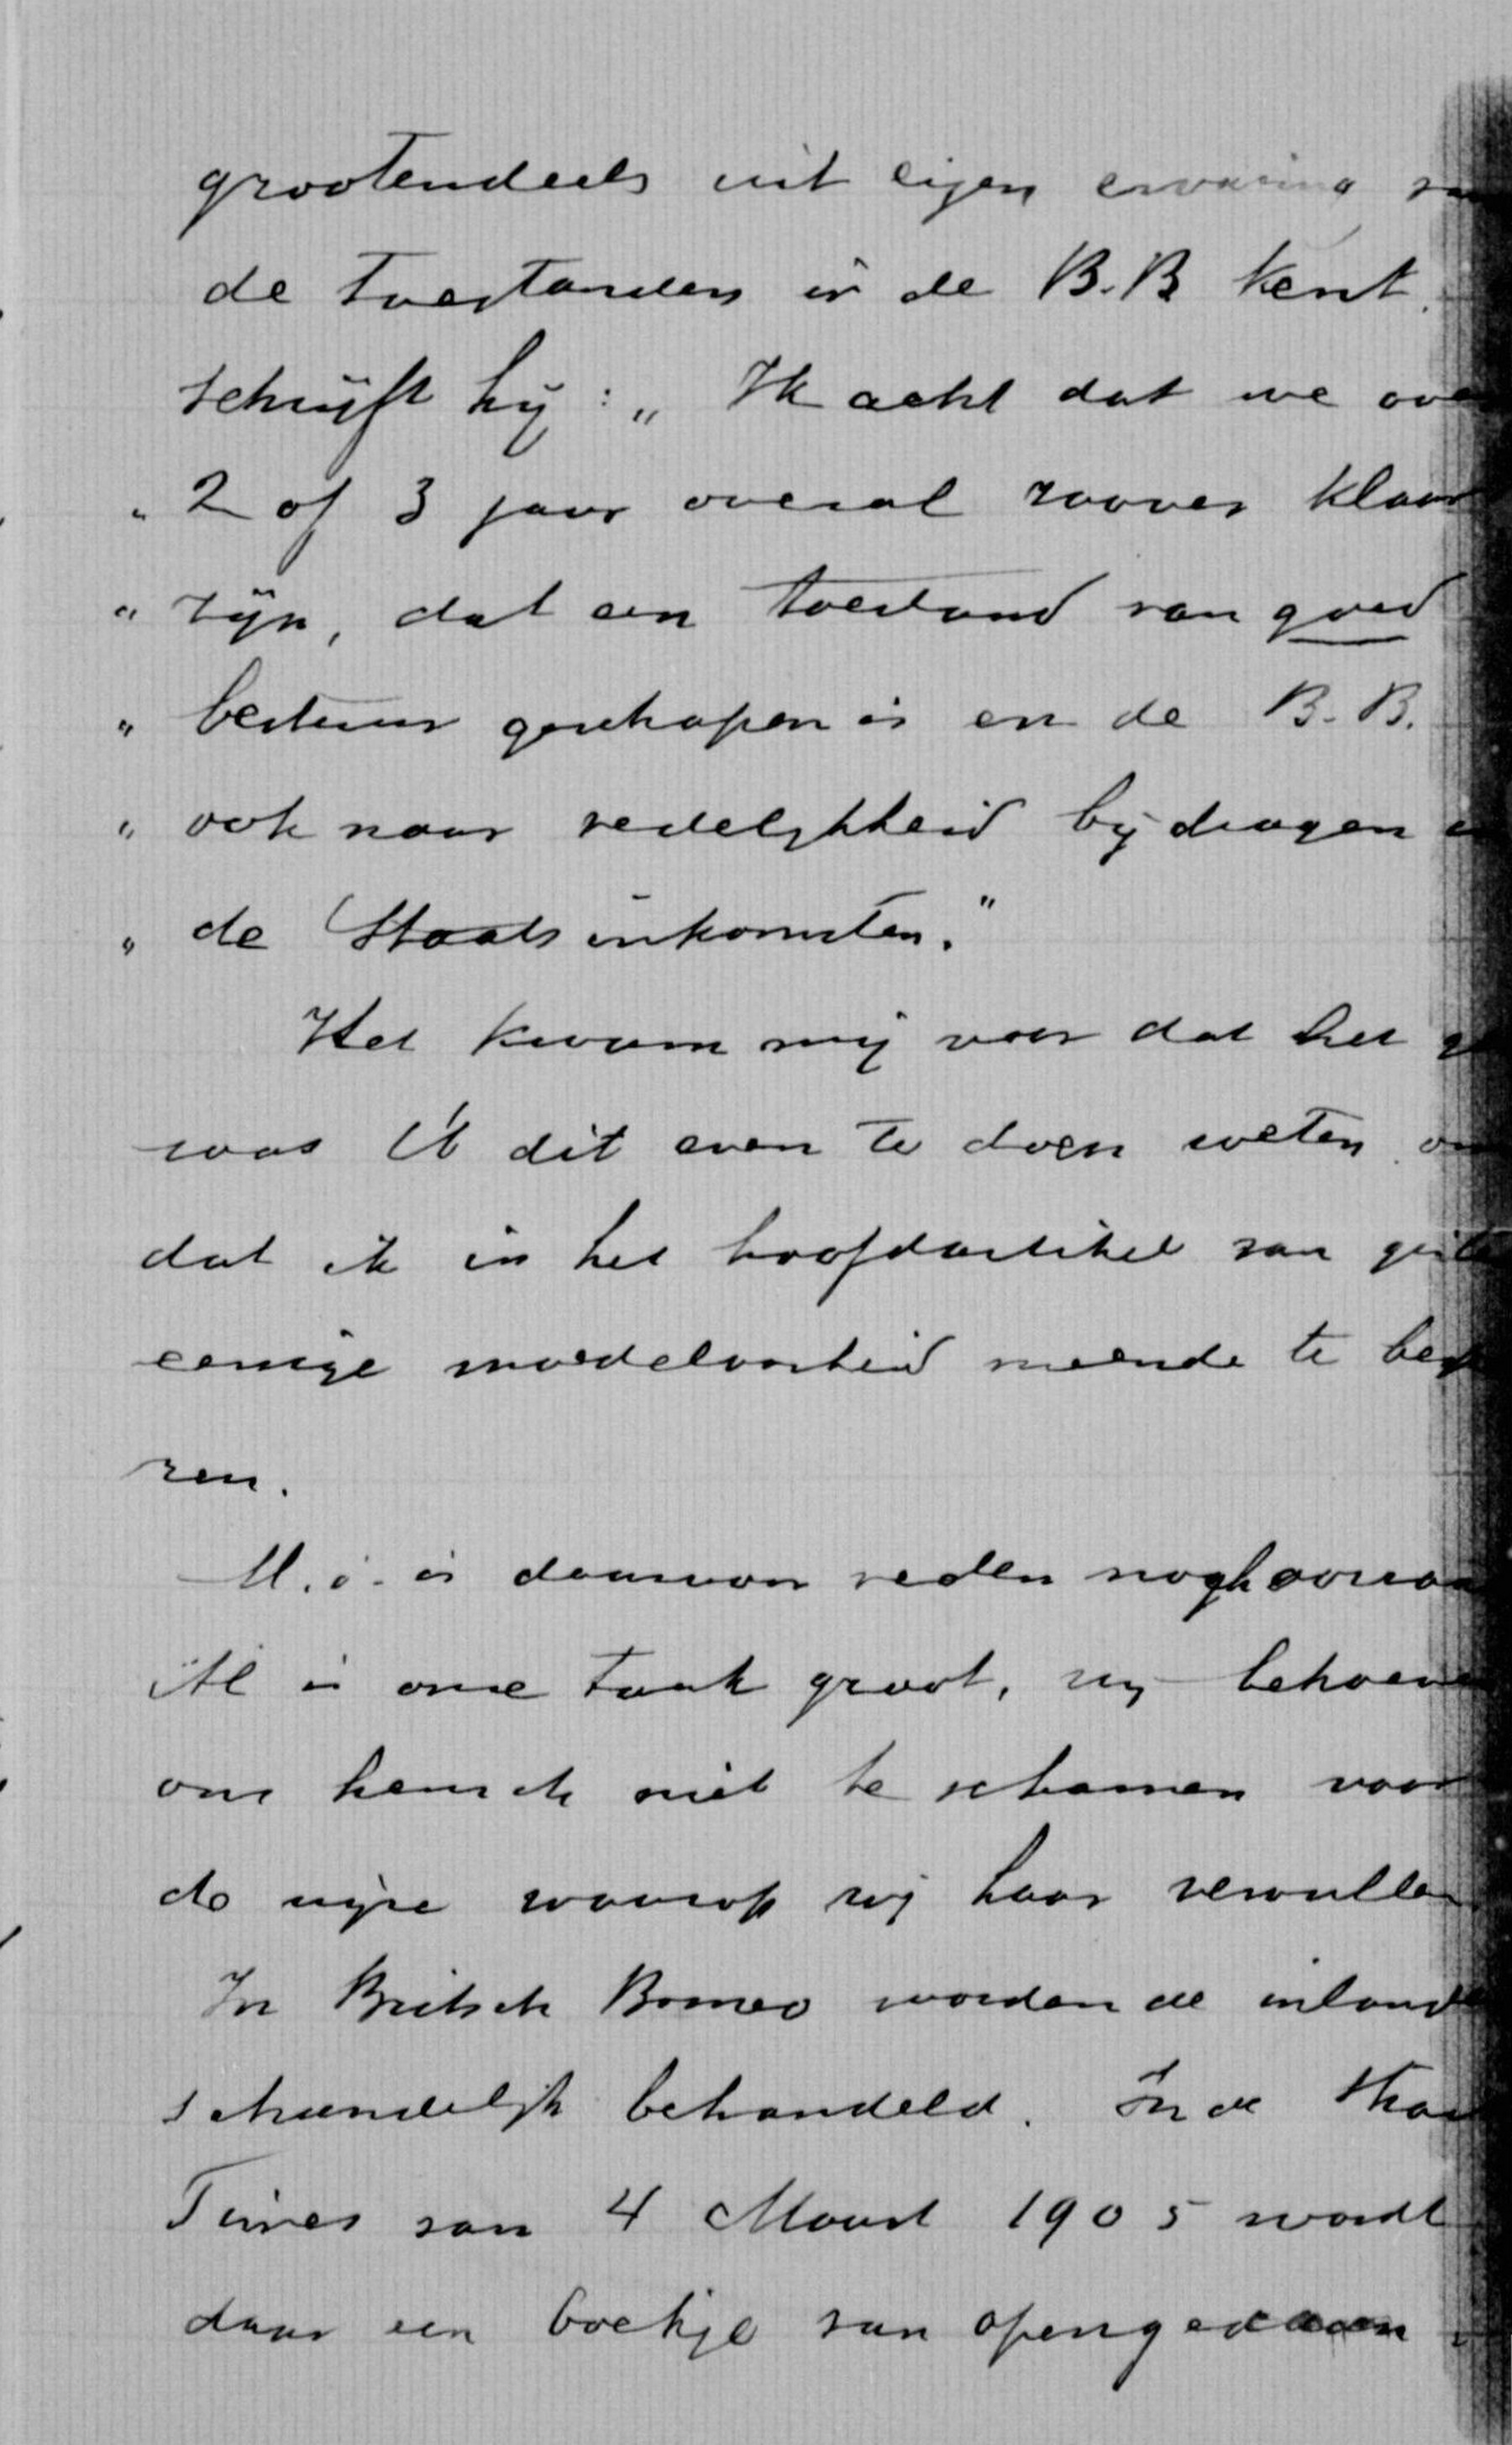 grootendeels uit eigen ervaring
de toestanden in de B.B kent.
schrijft hij: „ Ik acht dat we ove
„ 2 of 3 jaar overal zoover klaar
„ zijn, dat een toestand van goed
„ bestuur geschapen is en de B.B.
„ ook naar redelijkheid bijdragen
„ de Staatsinkomsten."
Het kwam mij voor dat het
was U dit even te doen weten
dat ik in het hoofdartikel van
eenige moedeloosheid meende te
ren.
M.i. is daarvoor reden
Al is onze taak groot, wij behoeve
ons heusch niet te schamen voor
de wijze waarop wij haar vervullen
In Britsch Borneo worden de inland
schandelijk behandeld. In de
Times van 4 Maart 1905 wordt
daar een boekje van opengedaan